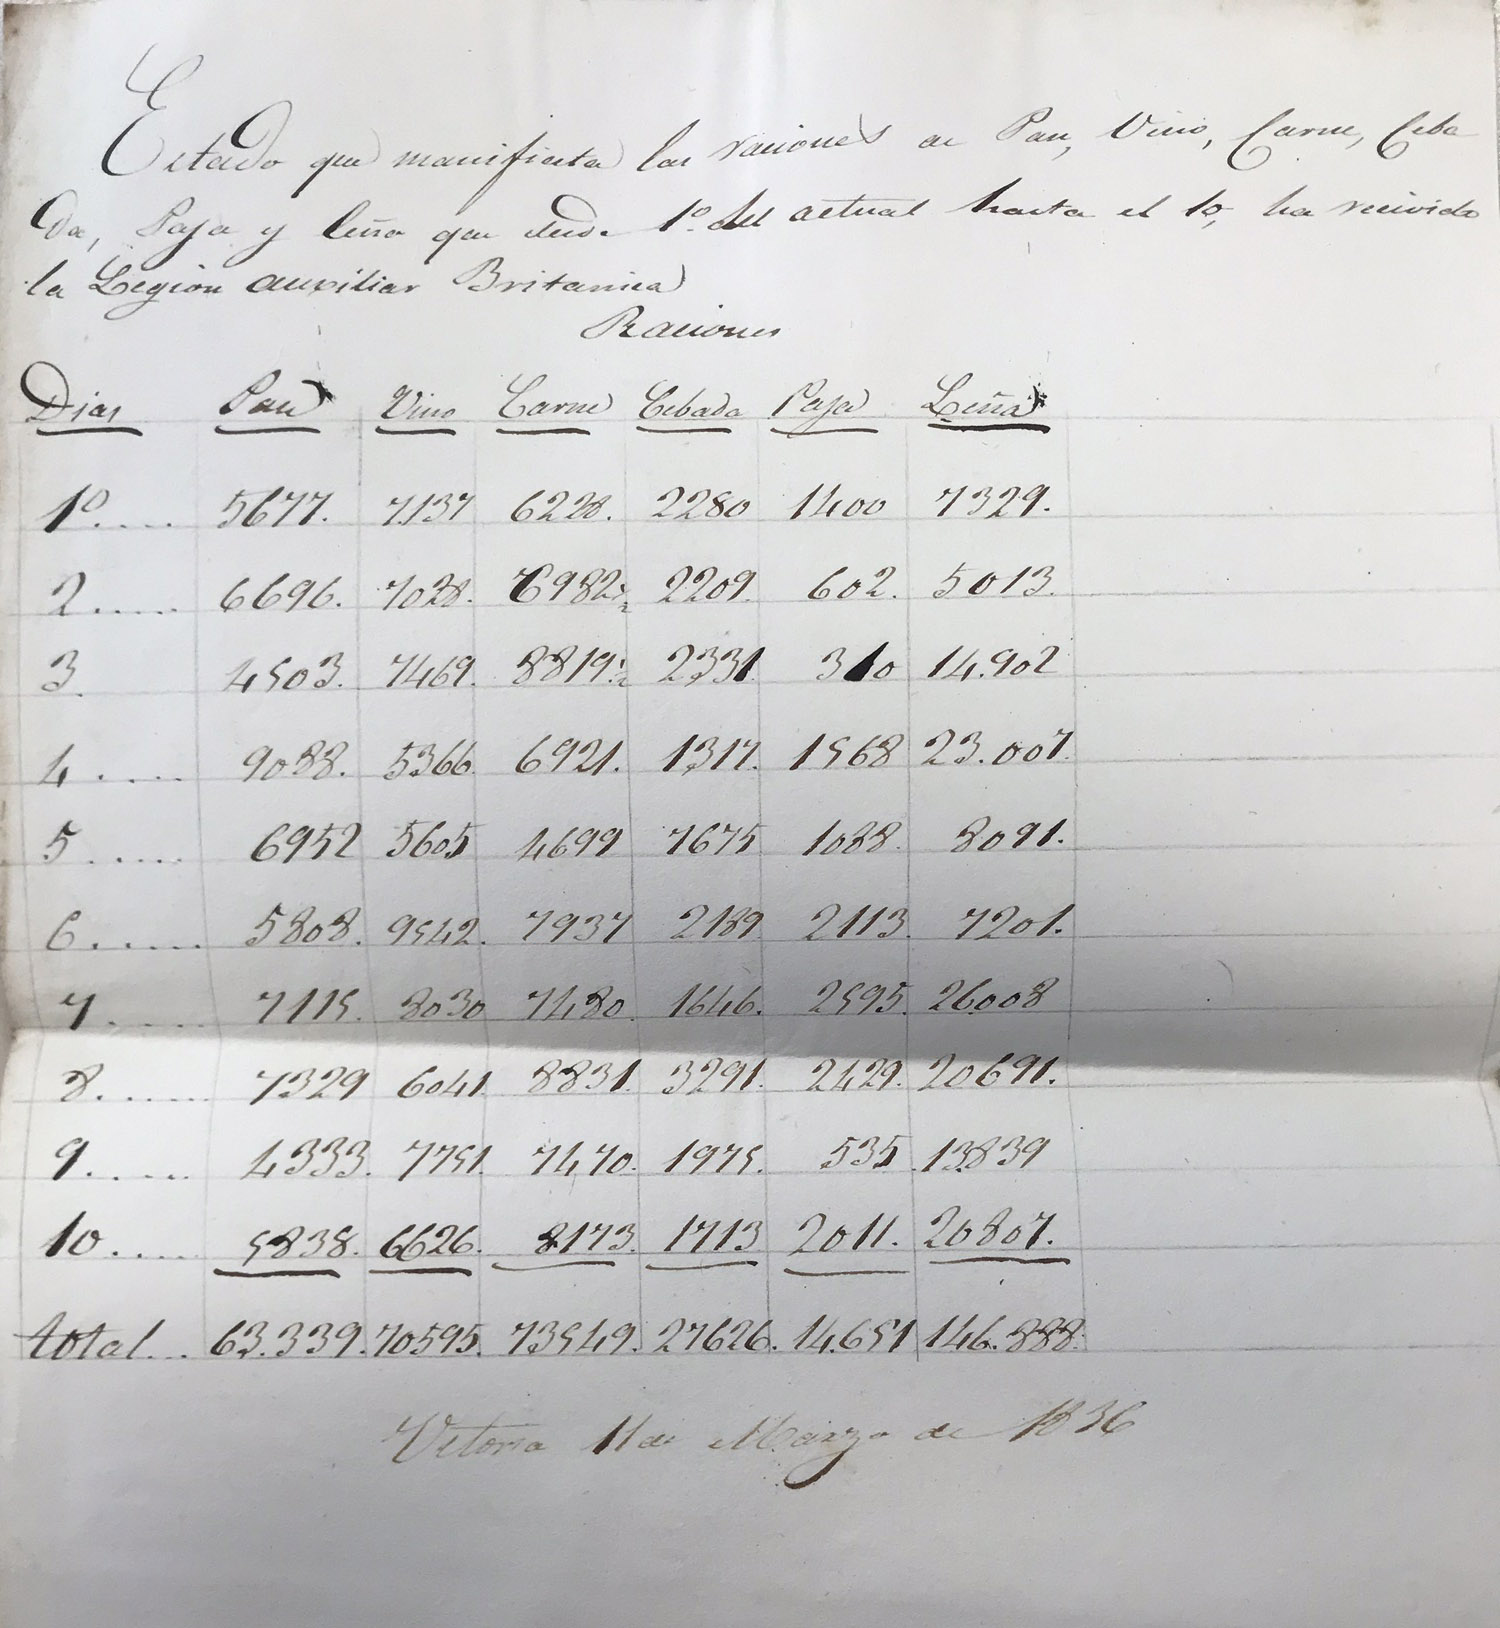 Estado que manifiesta las raciones de Pan, Vino, Carne, Ceba
da, Paja y leña que desde 1º del actual hasta el 10, ha recivido
la Legion auxiliar Britanica
Raciones
Dias Pan Vino Carne Cebada Paja Leña
1º.... 5677. 7137 6228. 2280 1400 7329.
2..... 6696. 7028. 6982½ 2209. 602. 5013.
3. 4503. 7469. 8819½ 2331. 310 14.902
4 ..... 9088. 5366. 6921. 1317. 1568 23.007.
5 ..... 6952 5605 4699 7675 1088. 8091.
6..... 5808. 9542. 7937 2189 2113. 7201.
7 ..... 7115. 8030 7480. 1646. 2595. 26.008
8...... 7329 6041. 8831. 3291. 2429. 20691.
9..... 4333. 7751. 7470. 1975. 535. 13839
10..... 5838. 6626. 8173. 1713 2011. 20807.
total... 63.339. 70595. 73549. 27626. 14.651 146.888.
Vitoria 11 de Marzo de 1836